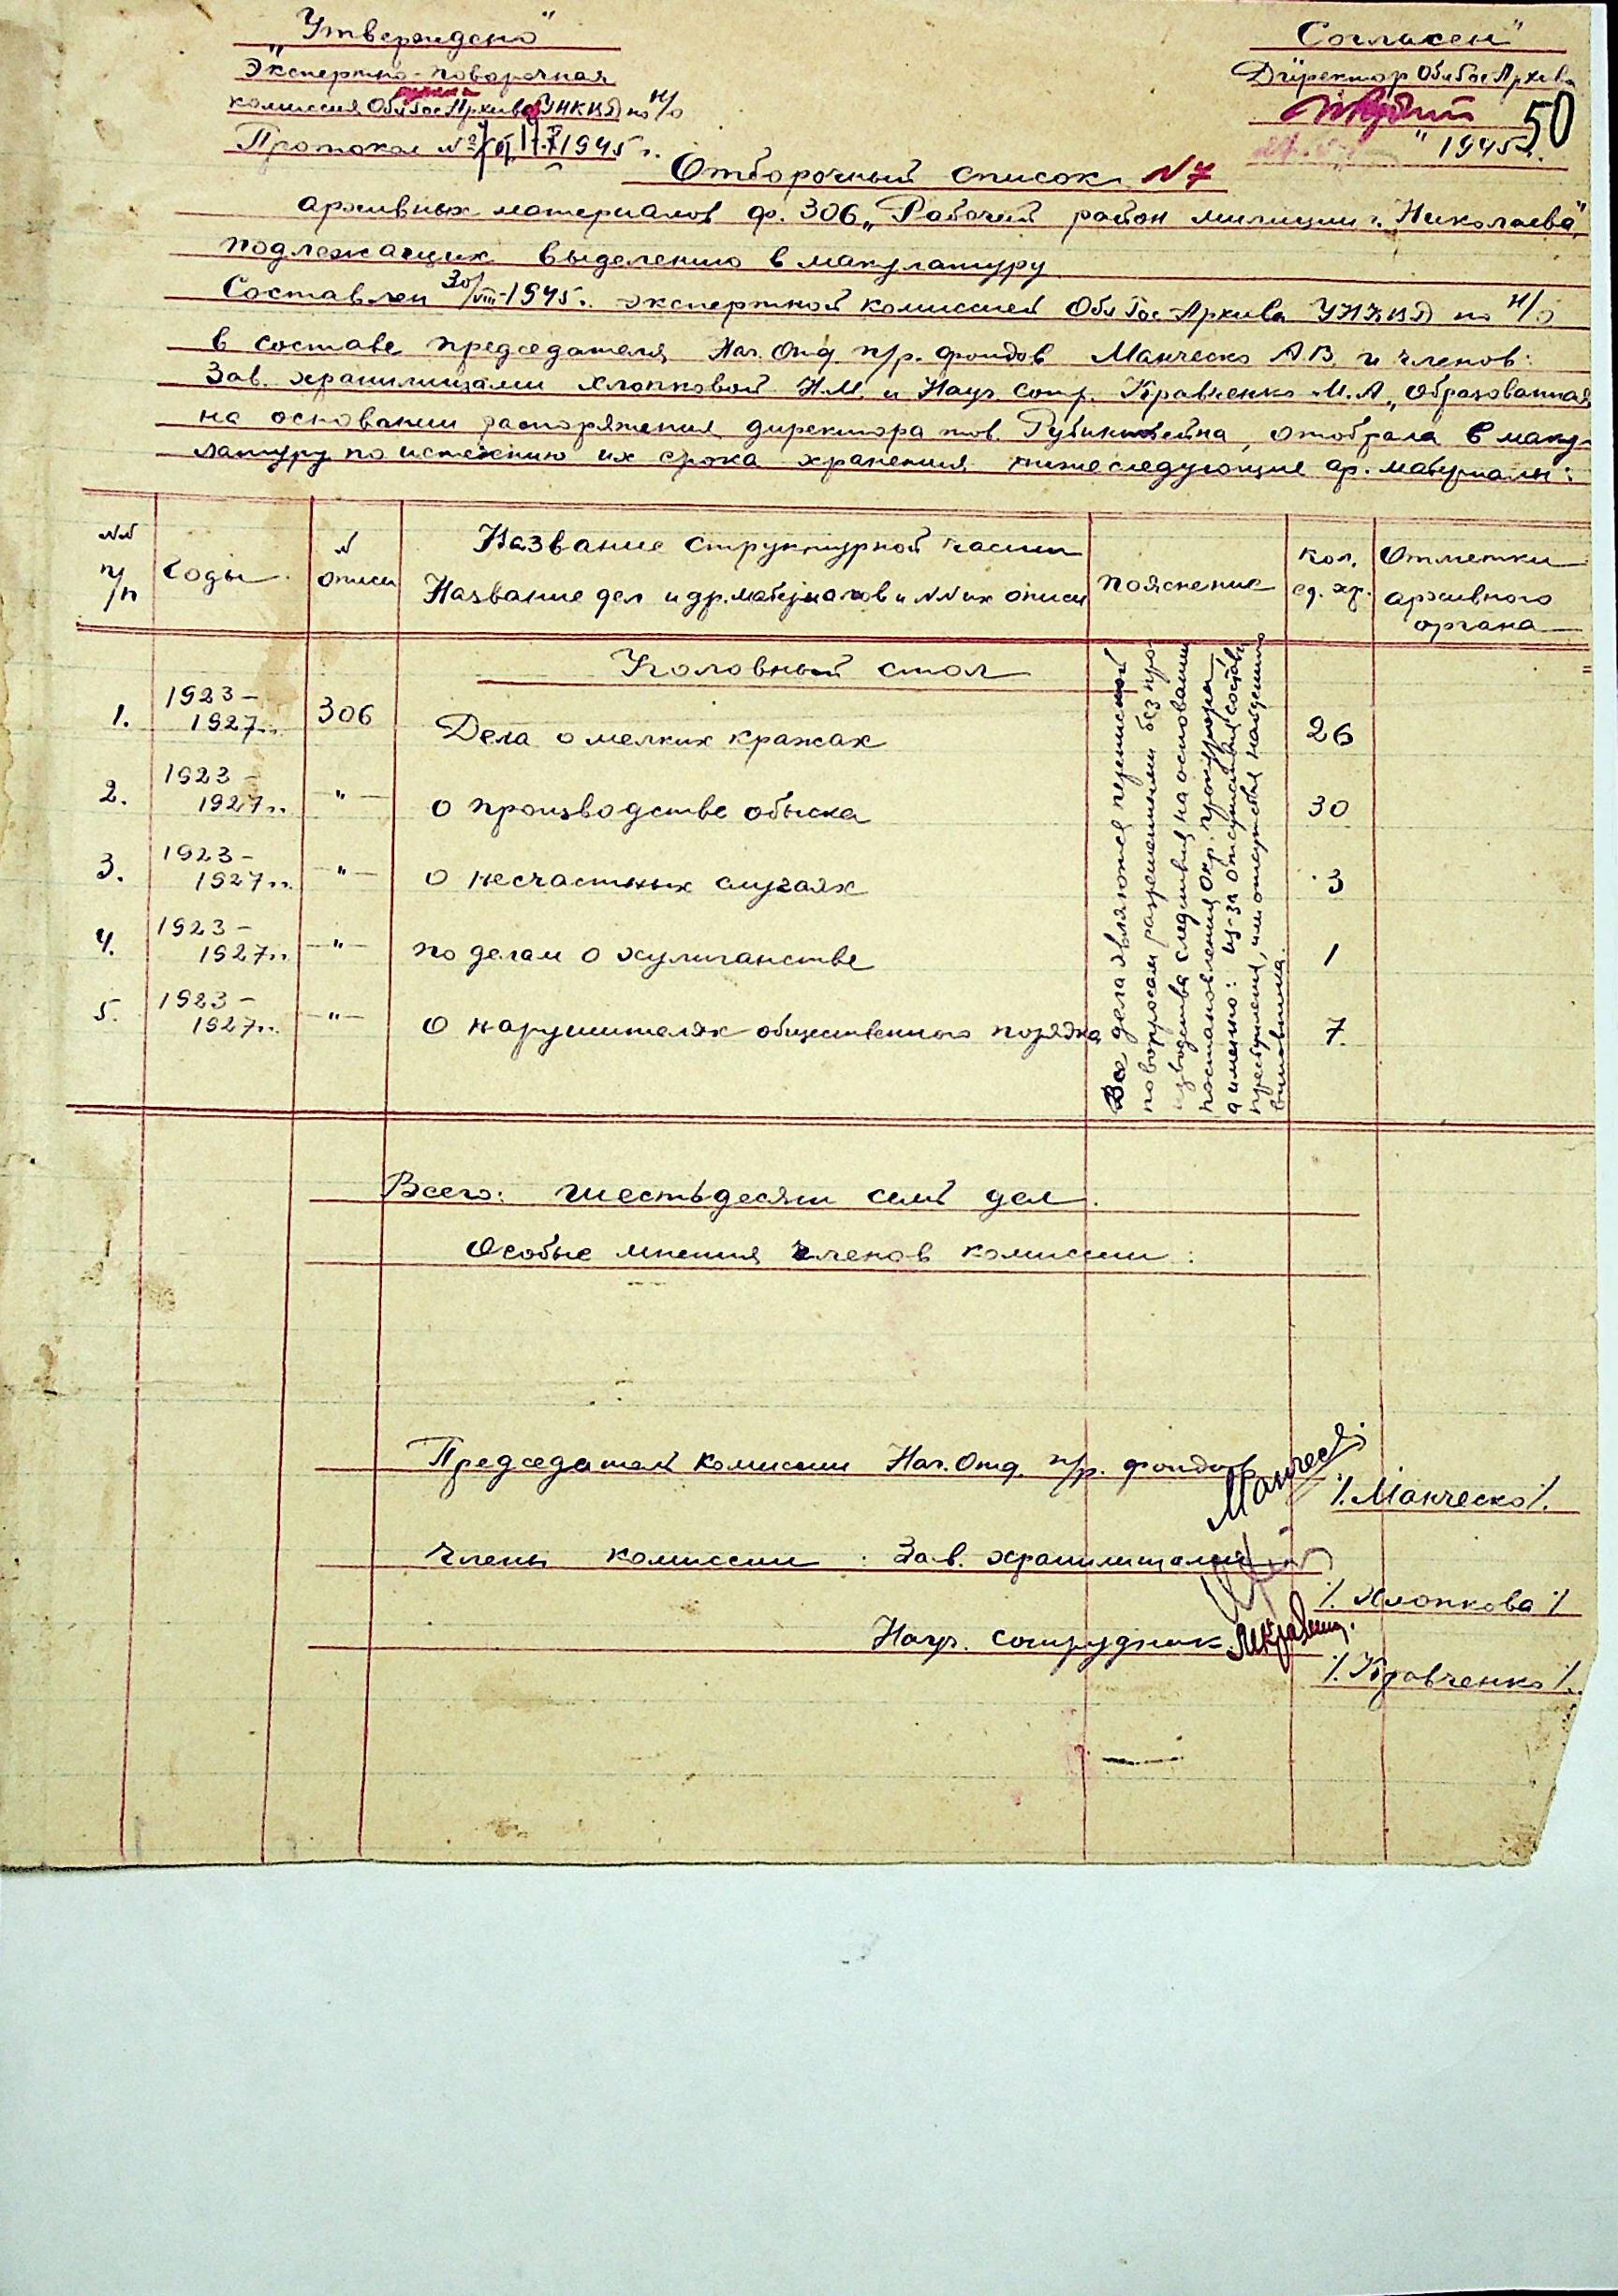 „Утверждено"
Экспертно-поверочная
комиссия Обл Гос Архива УНКВД по Н/О
Протокол № 1945 г.
„Согласен"
Директор Обл Гос Архива
50
" 1945 г.
Отборочный список N 7
архивных материалов ф. 306 „Рабочий район милиции г. Николаева",
подлежащих выделению в макулатуру
Составлен 30/VIII-1945 г. экспертной комиссией Обл Гос Архива УНКВД по Н/О
в составе председателя Нач. Отд. п/р. фондов Манческо А.В. и членов:
Зав. хранилищами Хлопковой Н.М. и Науч. Сотр. Кравченко М.А., образованная
на основании распоряжения директора тов. Рубинштейна, отобрала в маку-
латуру по истечению их срока хранения нижеследующие ар. материалы:
NN п/п
Годы
N описи
Название структурной части
Название дел и др. материалов и NN их описи
Пояснение
Кол. ед. хр.
Отметки архивного органа
Уголовный стол
1. 1923-1927 г.г. 306 Дела о мелких кражах 26
2. 1923-1927 г.г. —"— о производстве обыска 30
3. 1923-1927 г.г. —"— о несчастных случаях 3
4. 1923-1927 г.г. —"— по делам о хулиганстве 1
5. 1923-1927 г.г. —"— о нарушителях общественного порядка 7.
Все дела являются перепиской
по вопросам разрешенными без про-
изводства следствия на основании
постановления Окр. прокурора,
а именно: из-за отсутствия состава
преступления, или отсутствия найденного
виновника.
Всего: шестьдесят семь дел.
Особые мнения членов комиссии:
Председатель комиссии Нач. Отд. п/р. фондов
/. Манческо /.
Члены комиссии: Зав. хранилищами
/. Хлопкова /
Науч. сотрудник
/. Кравченко /.